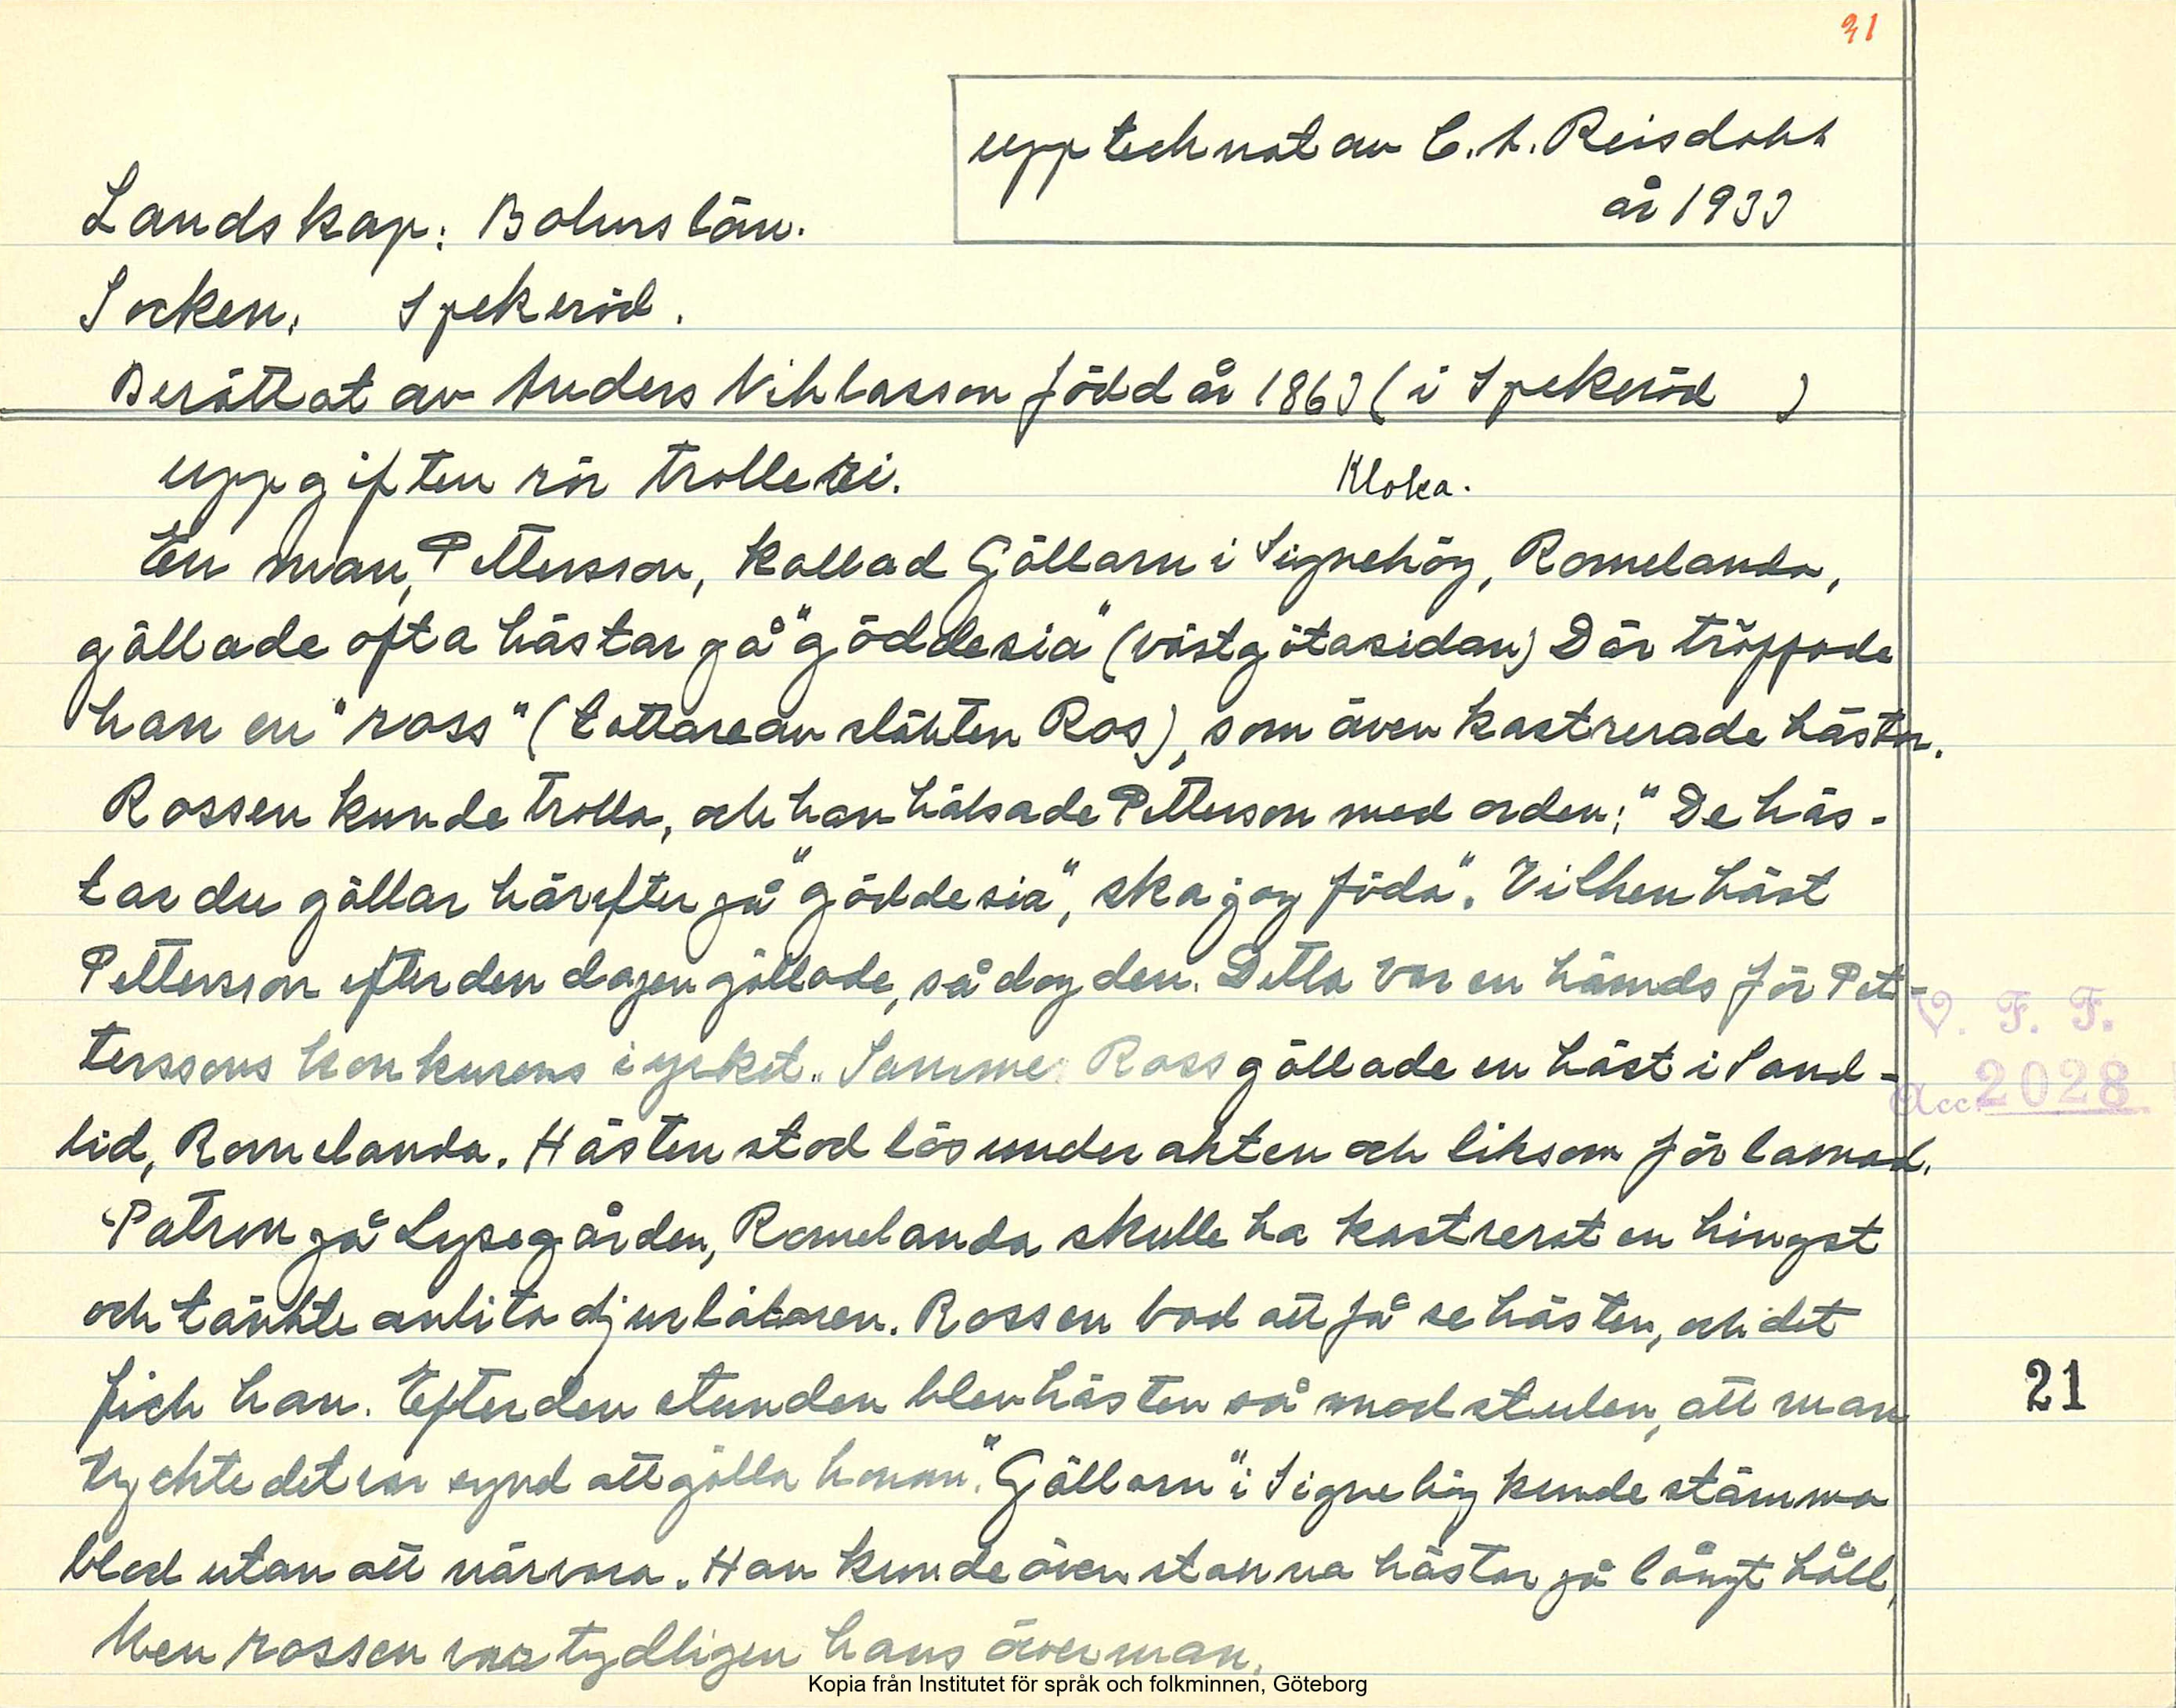 31
upptecknat av C. A. Reisdahl
år 1933
Landskap: Bohuslän.
Socken, Spekeröd.
Berättat av Anders Niklasson född år 1863 (i Spekeröd )
uppgiften rör trolleri. Kloka.
En man, Pettersson, kallad Gällarn i Signehög, Romelanda,
gällade ofta hästar på "göddesia" (västgötasidan) Där träffade
han en "ross" (tattare av släkten Ros), som även kastrerade hästar.
Rossen kunde trolla, och han hälsade Petterson med orden; "De häs-
tar du gällar härefter på "göddesia", ska jag föda". Vilken häst
Pettersson efter den dagen gällade, så dog den. Detta var en hämds för Pet-
terssons konkurens i yrket. Samme Ross gällade en häst i Sand-
lid, Romelanda. Hästen stod lös under akten och liksom förlamad.
Patron på Lysegården, Romelanda skulle ha kastrerat en hingst
och tänkte anlita djurläkaren. Rossen bad att få se hästen, och det
fick han. Efter den stunden blev hästen så modstulen, att man
tyckte det var synd att gälla honom. "Gällarn" i Signehög kunde stämma
blod utan att närvara. Han kunde även stanna hästar på långt håll,
Men rossen var tydligen hans överman.
V. F. F.
Acc. 2028
21
Kopia från Institutet för språk och folkminnen, Göteborg